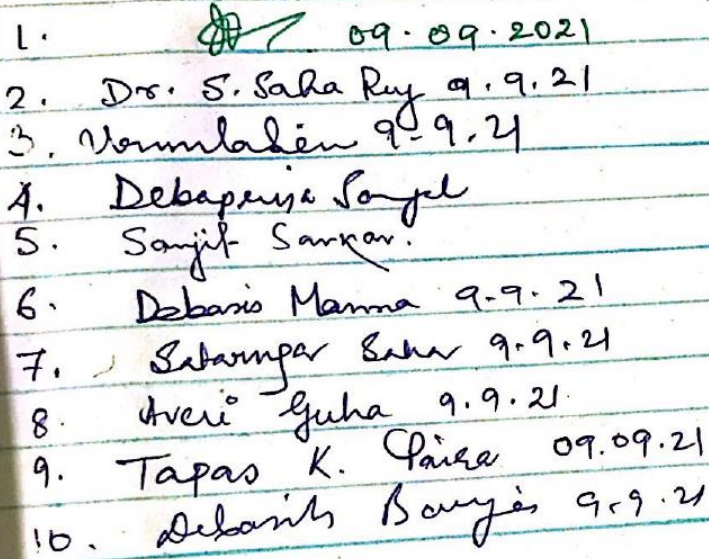 1. 09.09.2021
2. Dr. S. Saha Roy 9.9.21
3. 9-9.21
4. Debapriya Sanyal
5. Sanjit Sarkar.
6. Debasis Manna 9-9.21
7. Saha 9.9.21
8. Averi Guha 9.9.21
9. Tapas K. Paira 09.09.21
10. 9.9.21